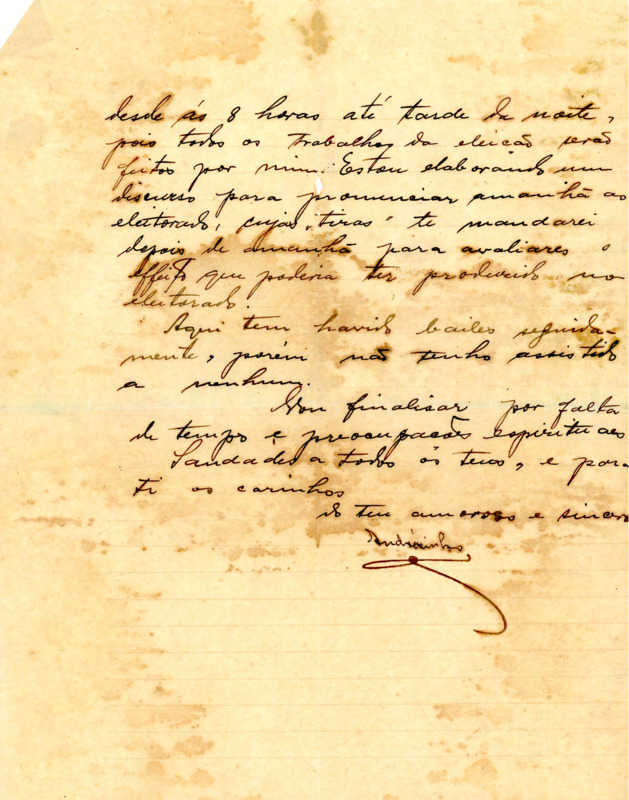 desde ás 8 horas até tarde da noite,
pois todos os trabalhos da eleicão serão
feitos por mim. Estou elaborando um
discurso para pronunciar amanhã ao
eleitorado, cujas "tiras" te mandarei
depois de amanhã para avaliares o
effeito que poderia ter produzido no
eleitorado.
Aqui tem havido bailes seguida-
mente, porém não tenho assistido
a nenhum.
Vou finalisar por falta
de tempo e preocupacões espirituaes
Saudades a todos os teus, e para
ti os carinhos
do teu amoroso e sincero